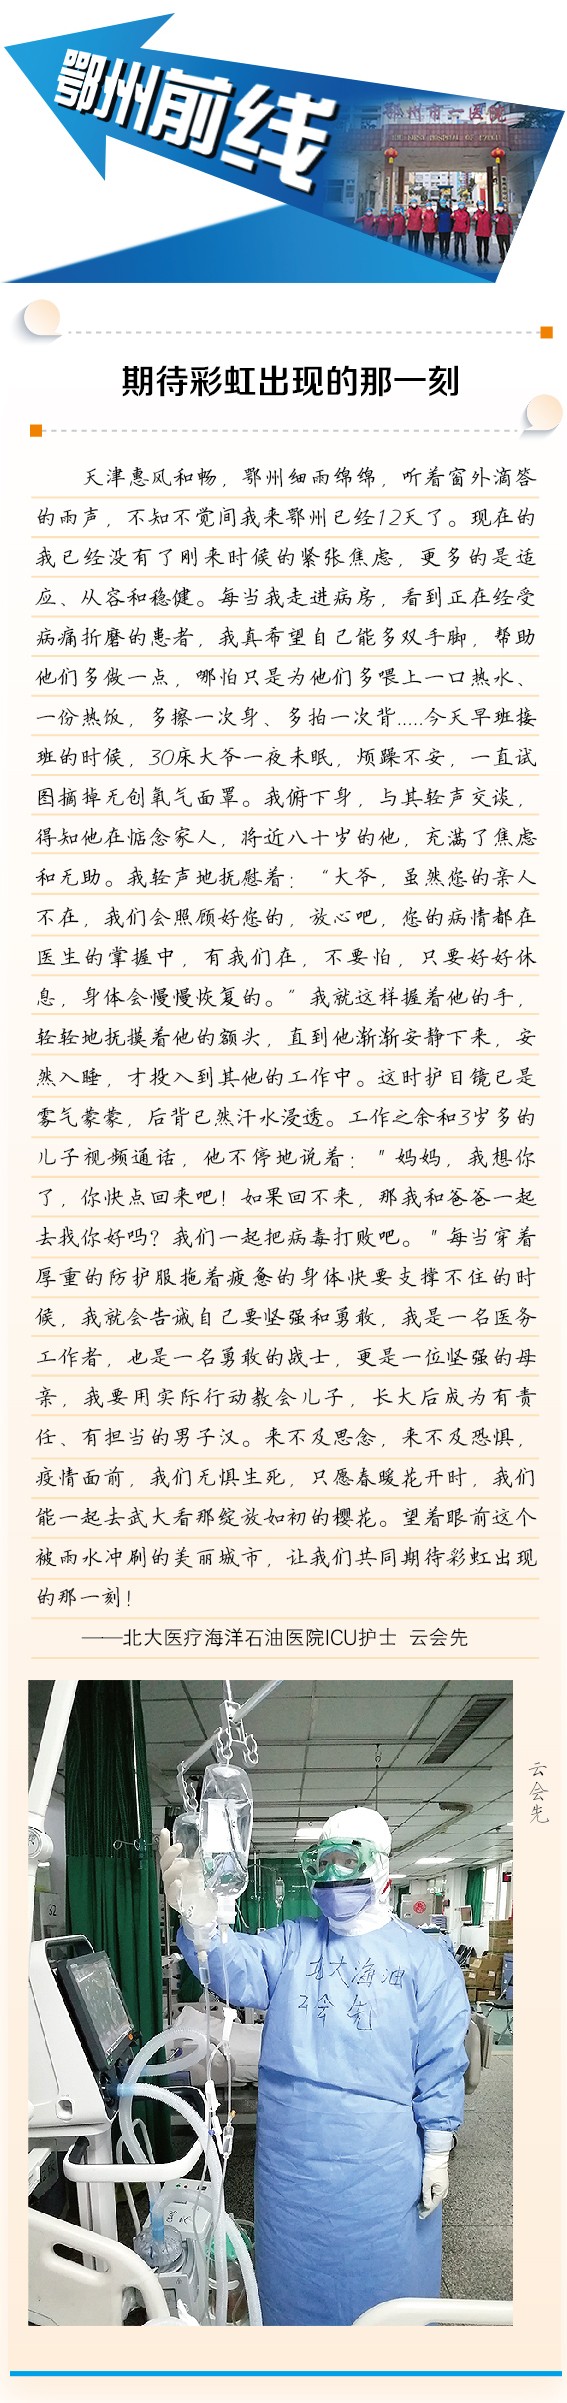 鄂州前线
鄂州市一医院
期待彩虹出现的那一刻
天津惠风和畅，鄂州细雨绵绵，听着窗外滴答
的雨声，不知不觉间我来鄂州已经12天了。现在的
我已经没有了刚来时候的紧张焦虑，更多的是适
应、从容和稳健。每当我走进病房，看到正在经受
病痛折磨的患者，我真希望自己能多双手脚，帮助
他们多做一点，哪怕只是为他们多喂上一口热水、
一份热饭，多擦一次身、多拍一次背.....今天早班接
班的时候，30床大爷一夜未眠，烦躁不安，一直试
图摘掉无创氧气面罩。我俯下身，与其轻声交谈，
得知他在惦念家人，将近八十岁的他，充满了焦虑
和无助。我轻声地抚慰着：“大爷，虽然您的亲人
不在，我们会照顾好您的，放心吧，您的病情都在
医生的掌握中，有我们在，不要怕，只要好好休
息，身体会慢慢恢复的。”我就这样握着他的手，
轻轻地抚摸着他的额头，直到他渐渐安静下来，安
然入睡，才投入到其他的工作中。这时护目镜已是
雾气蒙蒙，后背已然汗水浸透。工作之余和3岁多的
儿子视频通话，他不停地说着："妈妈，我想你
了，你快点回来吧！如果回不来，那我和爸爸一起
去找你好吗？我们一起把病毒打败吧。"每当穿着
厚重的防护服拖着疲惫的身体快要支撑不住的时
候，我就会告诫自己要坚强和勇敢，我是一名医务
工作者，也是一名勇敢的战士，更是一位坚强的母
亲，我要用实际行动教会儿子，长大后成为有责
任、有担当的男子汉。来不及思念，来不及恐惧，
疫情面前，我们无惧生死，只愿春暖花开时，我们
能一起去武大看那绽放如初的樱花。望着眼前这个
被雨水冲刷的美丽城市，让我们共同期待彩虹出现
的那一刻！
——北大医疗海洋石油医院ICU护士 云会先
云会先
北大海油
云会先